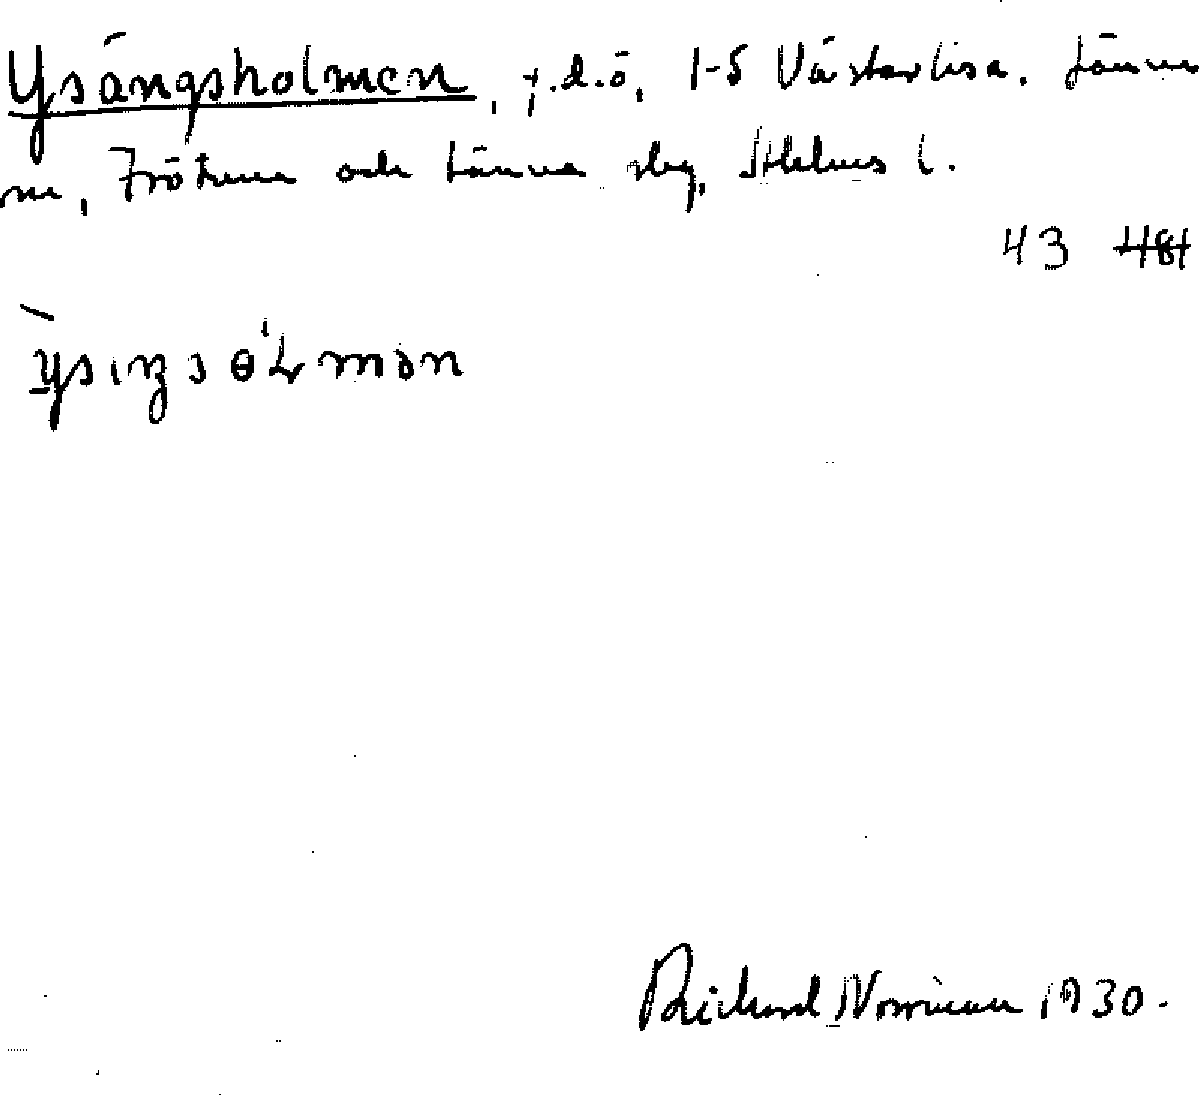 Ysängsholmen, f.d.ö, 1-5 Västerlisa. Länna
sn, Frötuna och Länna skg, Sthlms l.
43 481
Richard Norrman 1930.